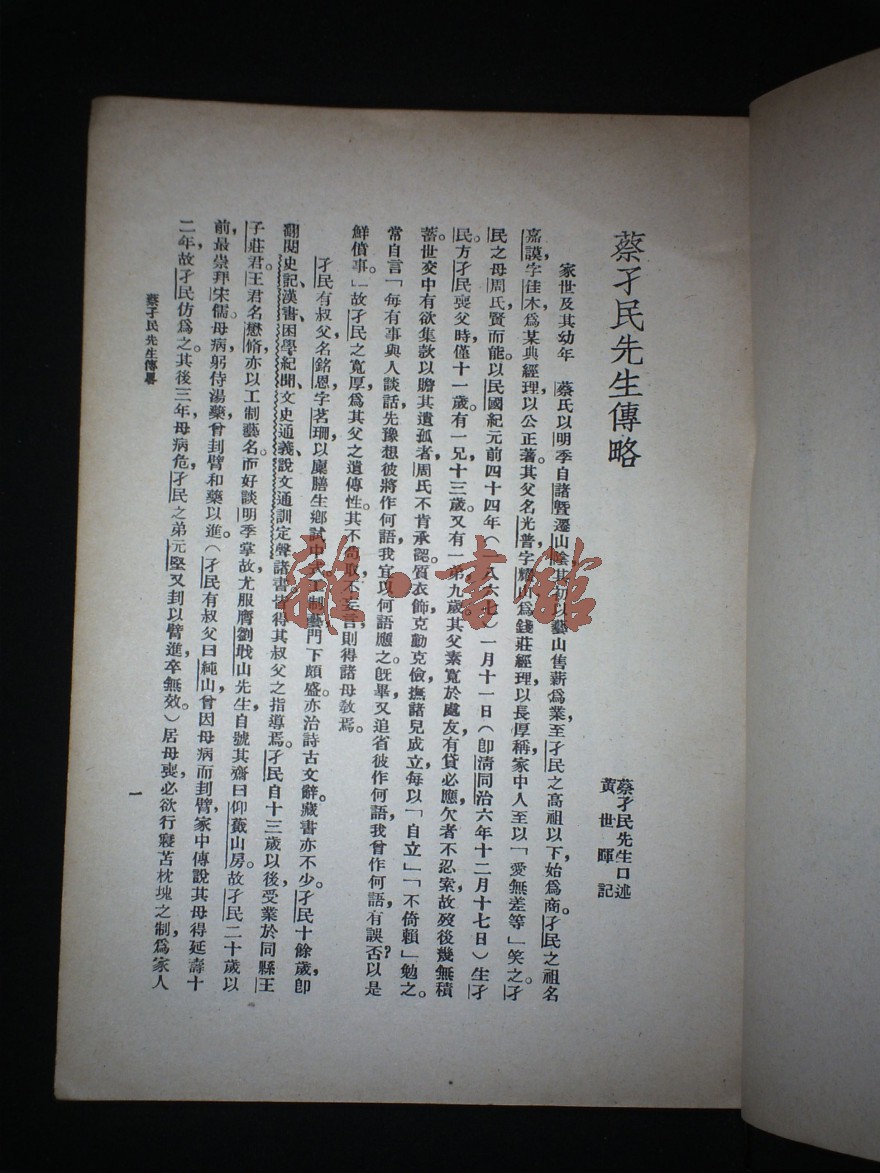 蔡孑民先生傳略
蔡孑民先生口述
黃世暉記
家世及其幼年 蔡氏以明季自諸暨遷山陰其初以藝山售薪為業,至孑民之高祖以下,始為商。孑民之祖名
嘉謨,字佳木,為某典經理,以公正著。其父名光普,字耀山,為錢莊經理,以長厚稱,家中人至以「愛無差等」笑之。孑
民之母周氏,賢而能。以民國紀元前四十四年(一八六七)一月十一日(即清同治六年十二月十七日)生孑
民。方孑民喪父時,僅十一歲。有一兄,十三歲。又有一弟,九歲。其父素寬於處友,有貸必應,欠者不忍索,故歿後幾無積
蓄。世交中有欲集款以贍其遺孤者,周氏不肯承認。質衣飾,克勤克儉,撫諸兒成立,每以「自立」「不倚賴」勉之。
常自言「每有事與人談話,先豫想彼將作何語,我宜以何語應之。旣畢,又追省彼作何語,我曾作何語,有誤否?以是
鮮僨事。」故孑民之寬厚,為其父之遺傳性。其不苟取,不妄言,則得諸母敎焉。
孑民有叔父,名銘恩,字茗珊,以廩膳生鄉試中式。工制藝,門下頗盛,亦治詩古文辭。藏書亦不少。孑民十餘歲,卽
翻閱史記、漢書、困學紀聞、文史通義、說文通訓定聲諸書,皆得其叔父之指導焉。孑民自十三歲以後,受業於同縣王
子莊君。王君名懋脩,亦以工制藝名。而好談明季掌故,尤服膺劉戢山先生,自號其齋曰仰蕺山房。故孑民二十歲以
前,最崇拜宋儒。母病,躬侍湯藥,曾刲臂和藥以進。(孑民有叔父曰純山,曾因母病而刲臂,家中傳說其母得延壽十
二年,故孑民仿為之。其後三年,母病危,孑民之弟元堅又刲以臂進,卒無效。)居母喪,必欲行寢苫枕塊之制,為家人
蔡孑民先生傳畧
一
雜·書館